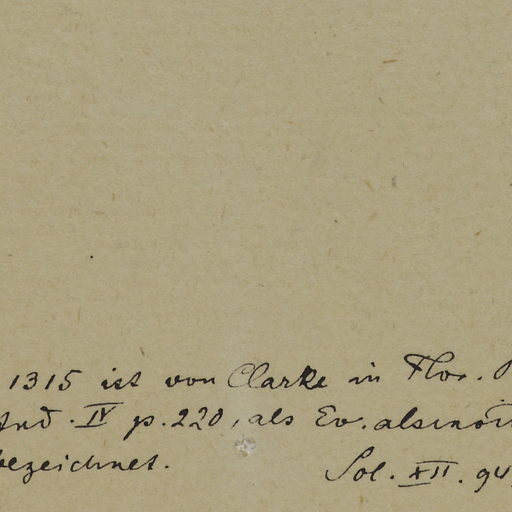 1315 ist von Clarke in Flor.
Ind. IV p. 220, als Ev. alsinoi
bezeichnet.
Sol. XII. 94